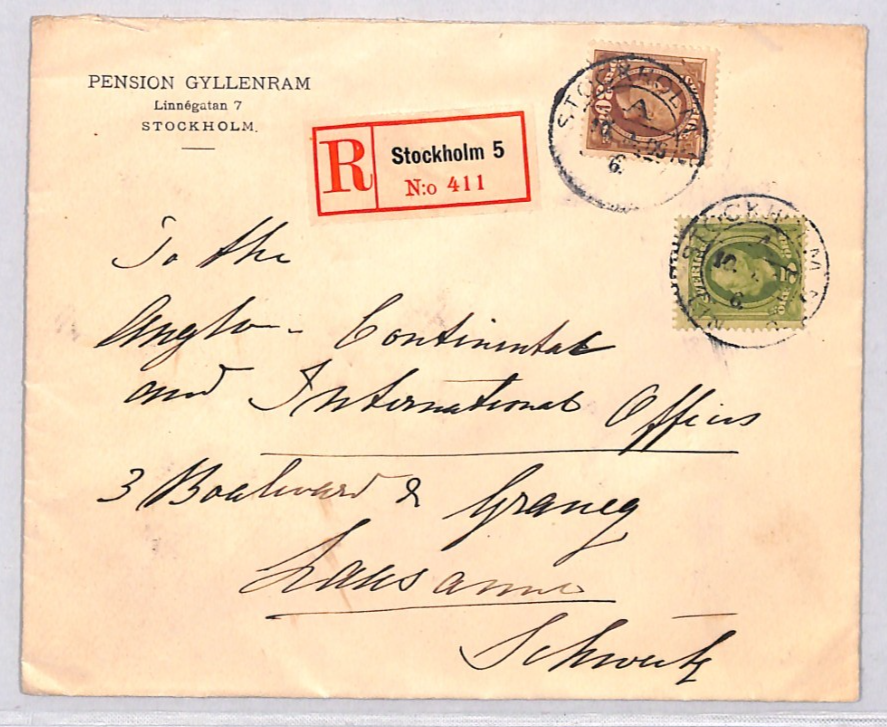 PENSION GYLLENRAM
Linnégatan 7
STOCKHOLM.
R
Stockholm 5
N:o 411
STOCKHOLM
STOCKHOLM 5
SVERIGE
To the
Anglo-Continental
and International Offices
3 Boulevard de Grancy
Lausanne
Schweitz